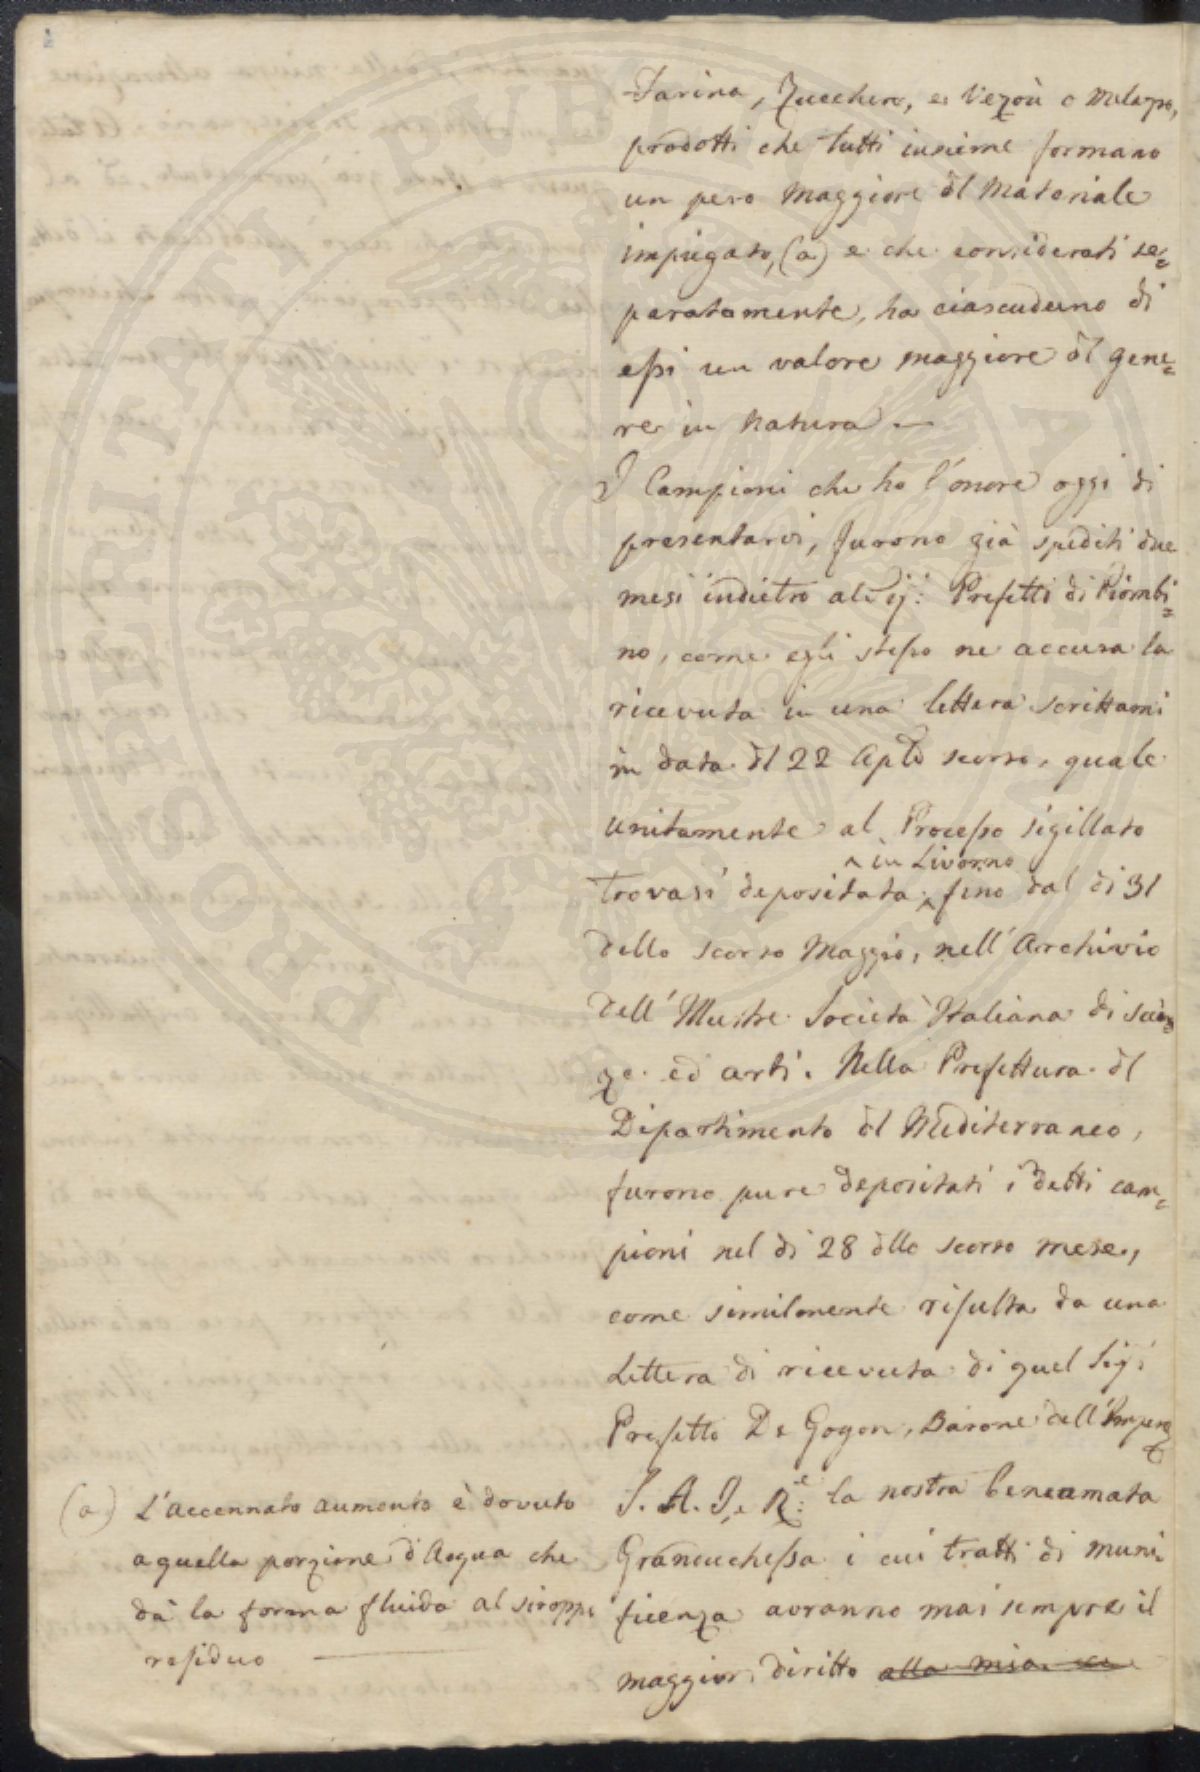 Farina, Zucchero, e Vezoù o Melazzo,
prodotti che tutti insieme formano
un peso maggiore dl materiale
impiegato, (a) e che considerati se=
paratamente, ha ciascuduno di
essi un valore maggiore dl gene=
re in natura —
I Campioni che ho l'onore oggi di
presentarvi, furono già spediti due
mesi indietro al Sig: Prefetto di Piombi=
no, come egli stesso ne accusa la
ricevuta in una lettera scrittami
in data dl 22 Aple scorso, quale
unitamente al Processo sigillato
trovasi depositata ^ in Livorno fino dal di 31
dello scorso Maggio, nell'Archivio
dell'Illustre Società Italiana di Scien=
ze ed arti. Nella Prefettura dl
Dipartimento dl Mediterraneo,
furono pure depositati i detti cam=
pioni nel di 28 dllo scorso mese,
come similmente risulta da una
Lettera di ricevuta di quel Sig:
Prefetto De Gogon, Barone dell'Impero
S. A. I. e R.e: la nostra beneamata
Granduchessa i cui tratti di muni=
ficenza avranno mai sempre il
maggior diritto alla mia
(a) L'accennato aumento è dovuto
a quella porzione d'Acqua che
dà la forma fluida al siroppo
residuo —